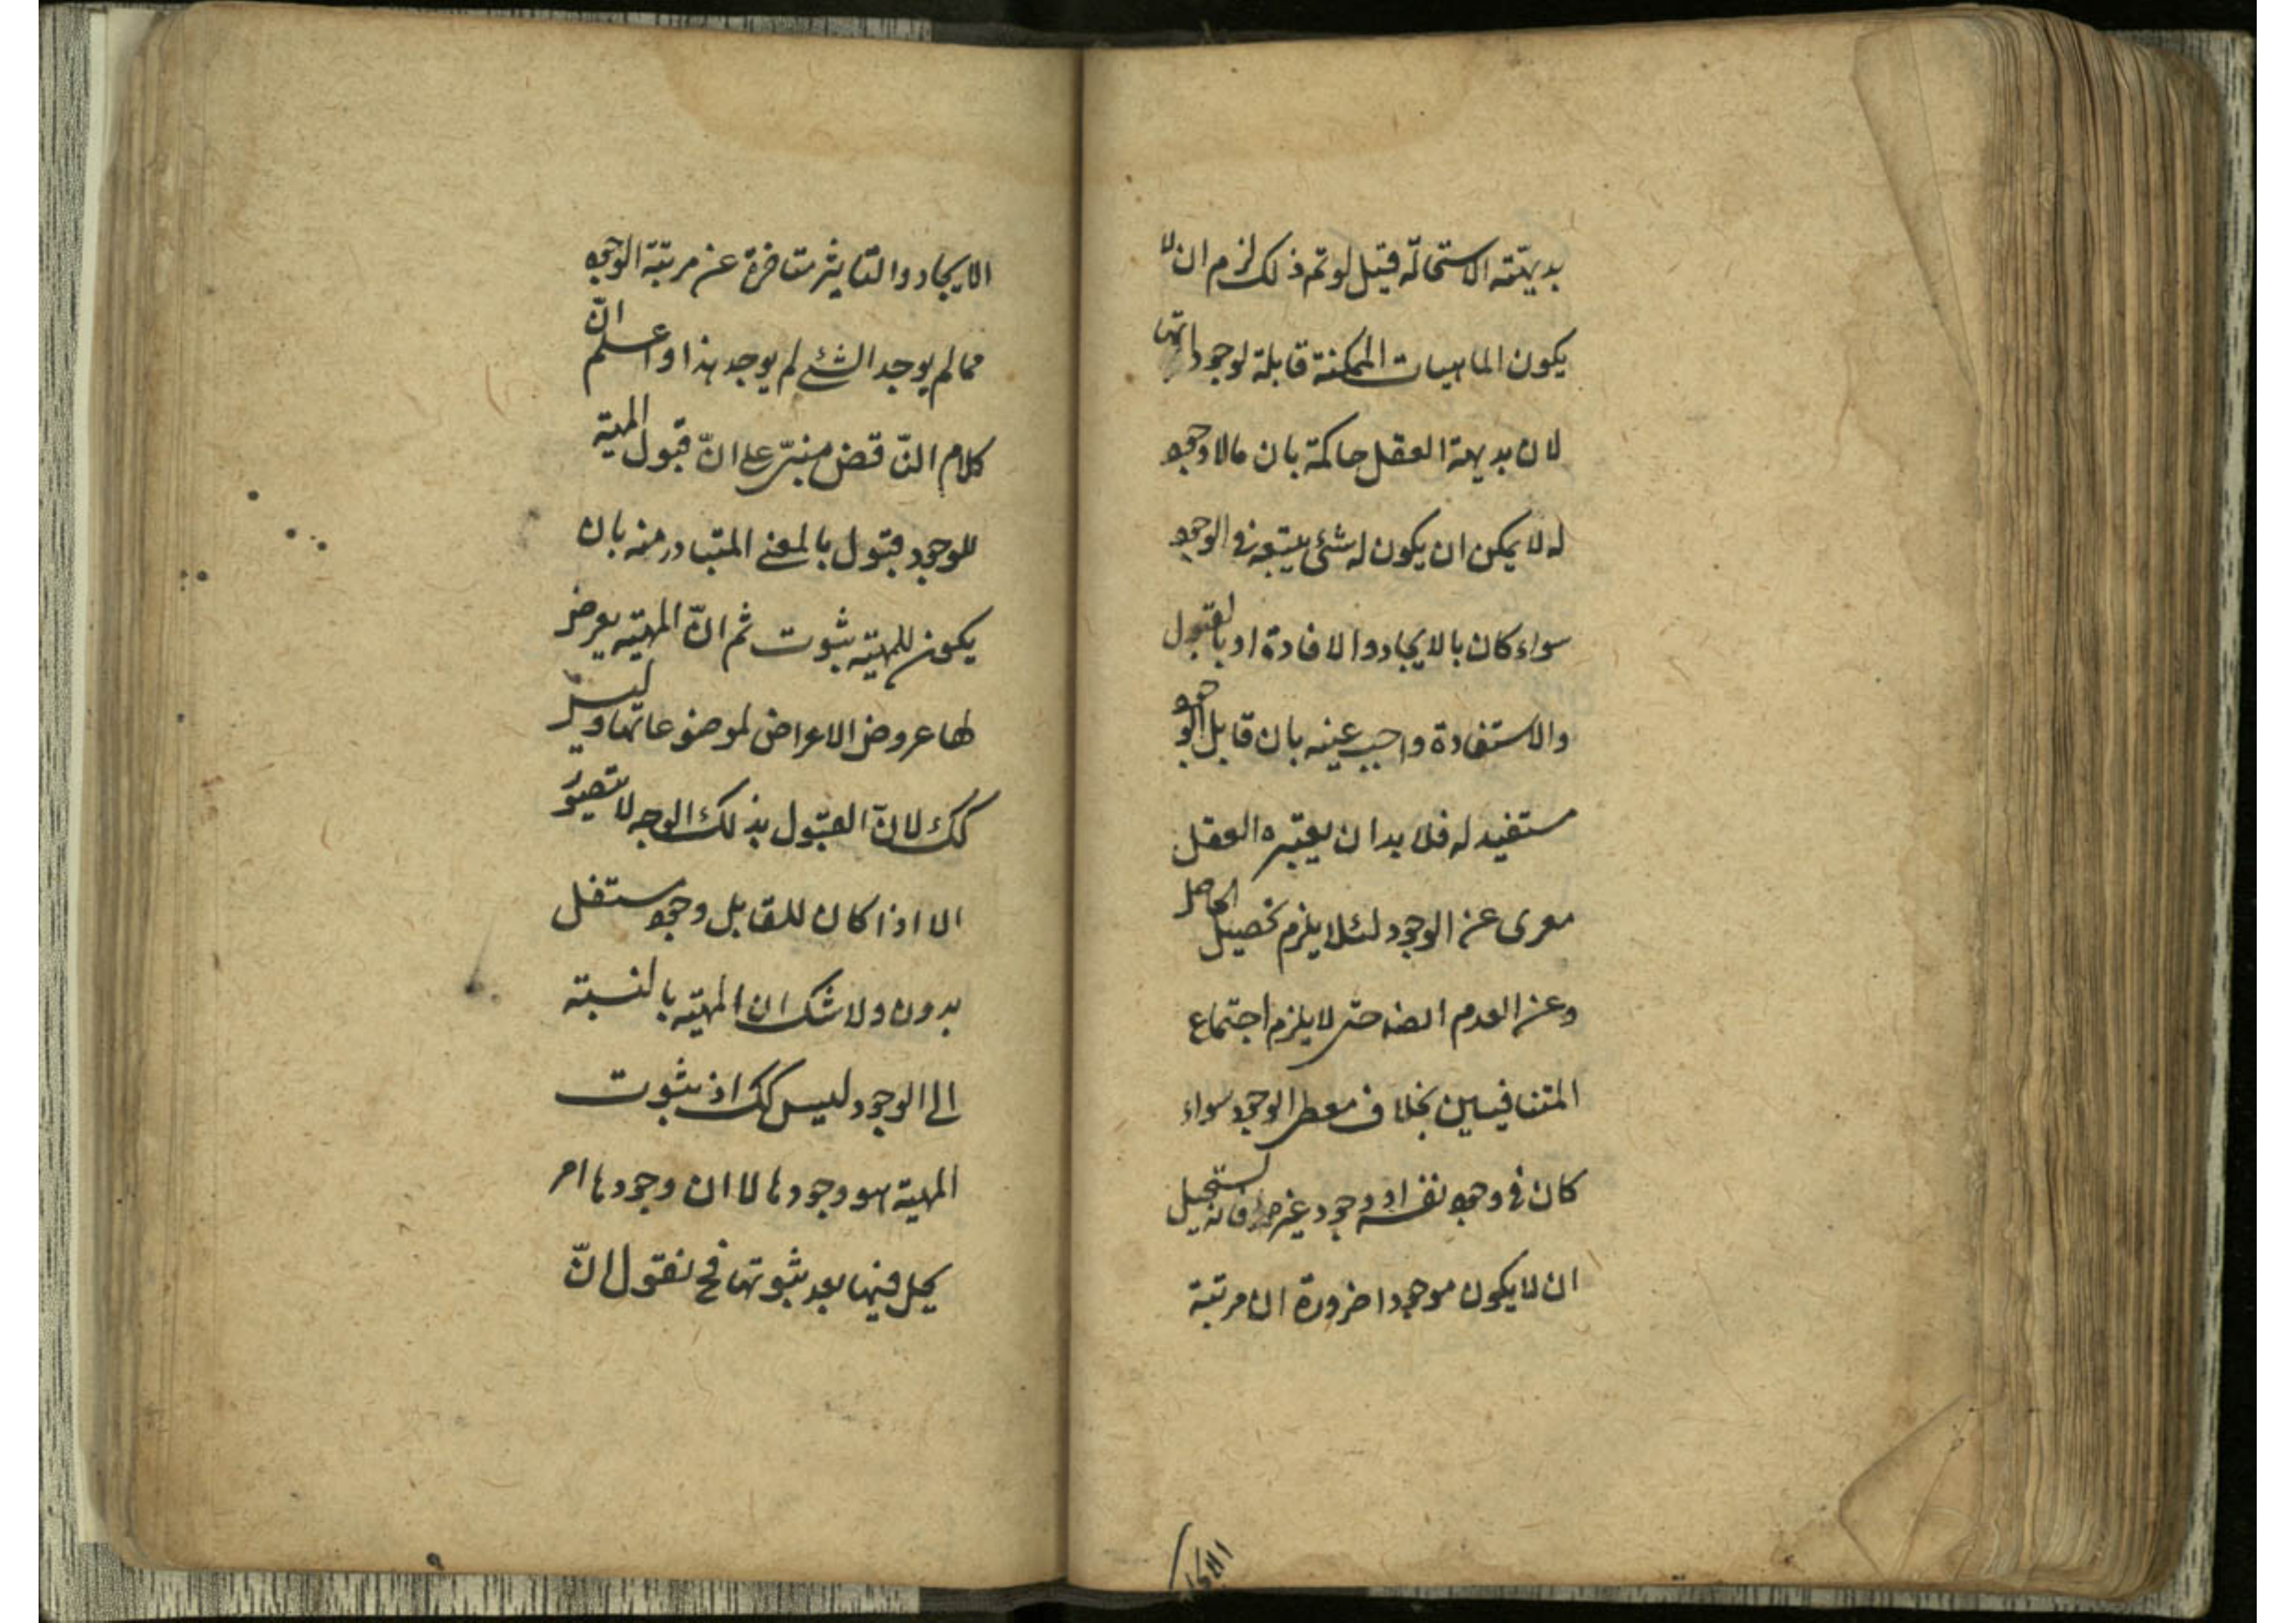 بديهته الاستحالة قيل لو تم ذلك لزم ان لا
يكون الماهيات الممكنة قابلة لوجوداتها
لان بديهة العقل حاكمة بان مالا وجود
له لا يمكن ان يكون له شئ يتبعه في الوجود
سواء كان بالايجاد والافادة او بالقبول
والاستفادة واجيب عنه بان قابل الوجود
مستفيد له فلا بد ان يعتبره العقل
معرى عن الوجود لئلا يلزم تحصيل الحاصل
وعن العدم ايضه حتى لا يلزم اجتماع
المتنافيين بخلاف معطى الوجود سواء
كان في وجود نفسه او وجود غيره فانه يستحيل
ان لا يكون موجودا ضرورة ان مرتبة
الايجاد
الايجاد والتاثير متاخرة عن مرتبة الوجود
فمالم يوجد الشئ لم يوجد هذا واعلم انّ
كلام النّاقض مبنىّ على انّ قبول المهية
للوجود قبول بالمعنى المتبادر منه بان
يكون للمهيته ثبوت ثم انّ المهيته يعرض
لها عروض الاعراض لموضوعاتها وليس
كك لانّ القبول بذلك الوجه لا تصوّر
الا اذا كان للقابل وجود مستقل
بدون ولا شك ان المهيته بالنسبة
الى الوجود ليس كك اذ ثبوت
المهية هو وجودها لا ان وجودها امر
يحل فيها بعد ثبوتها فح نقول انّ